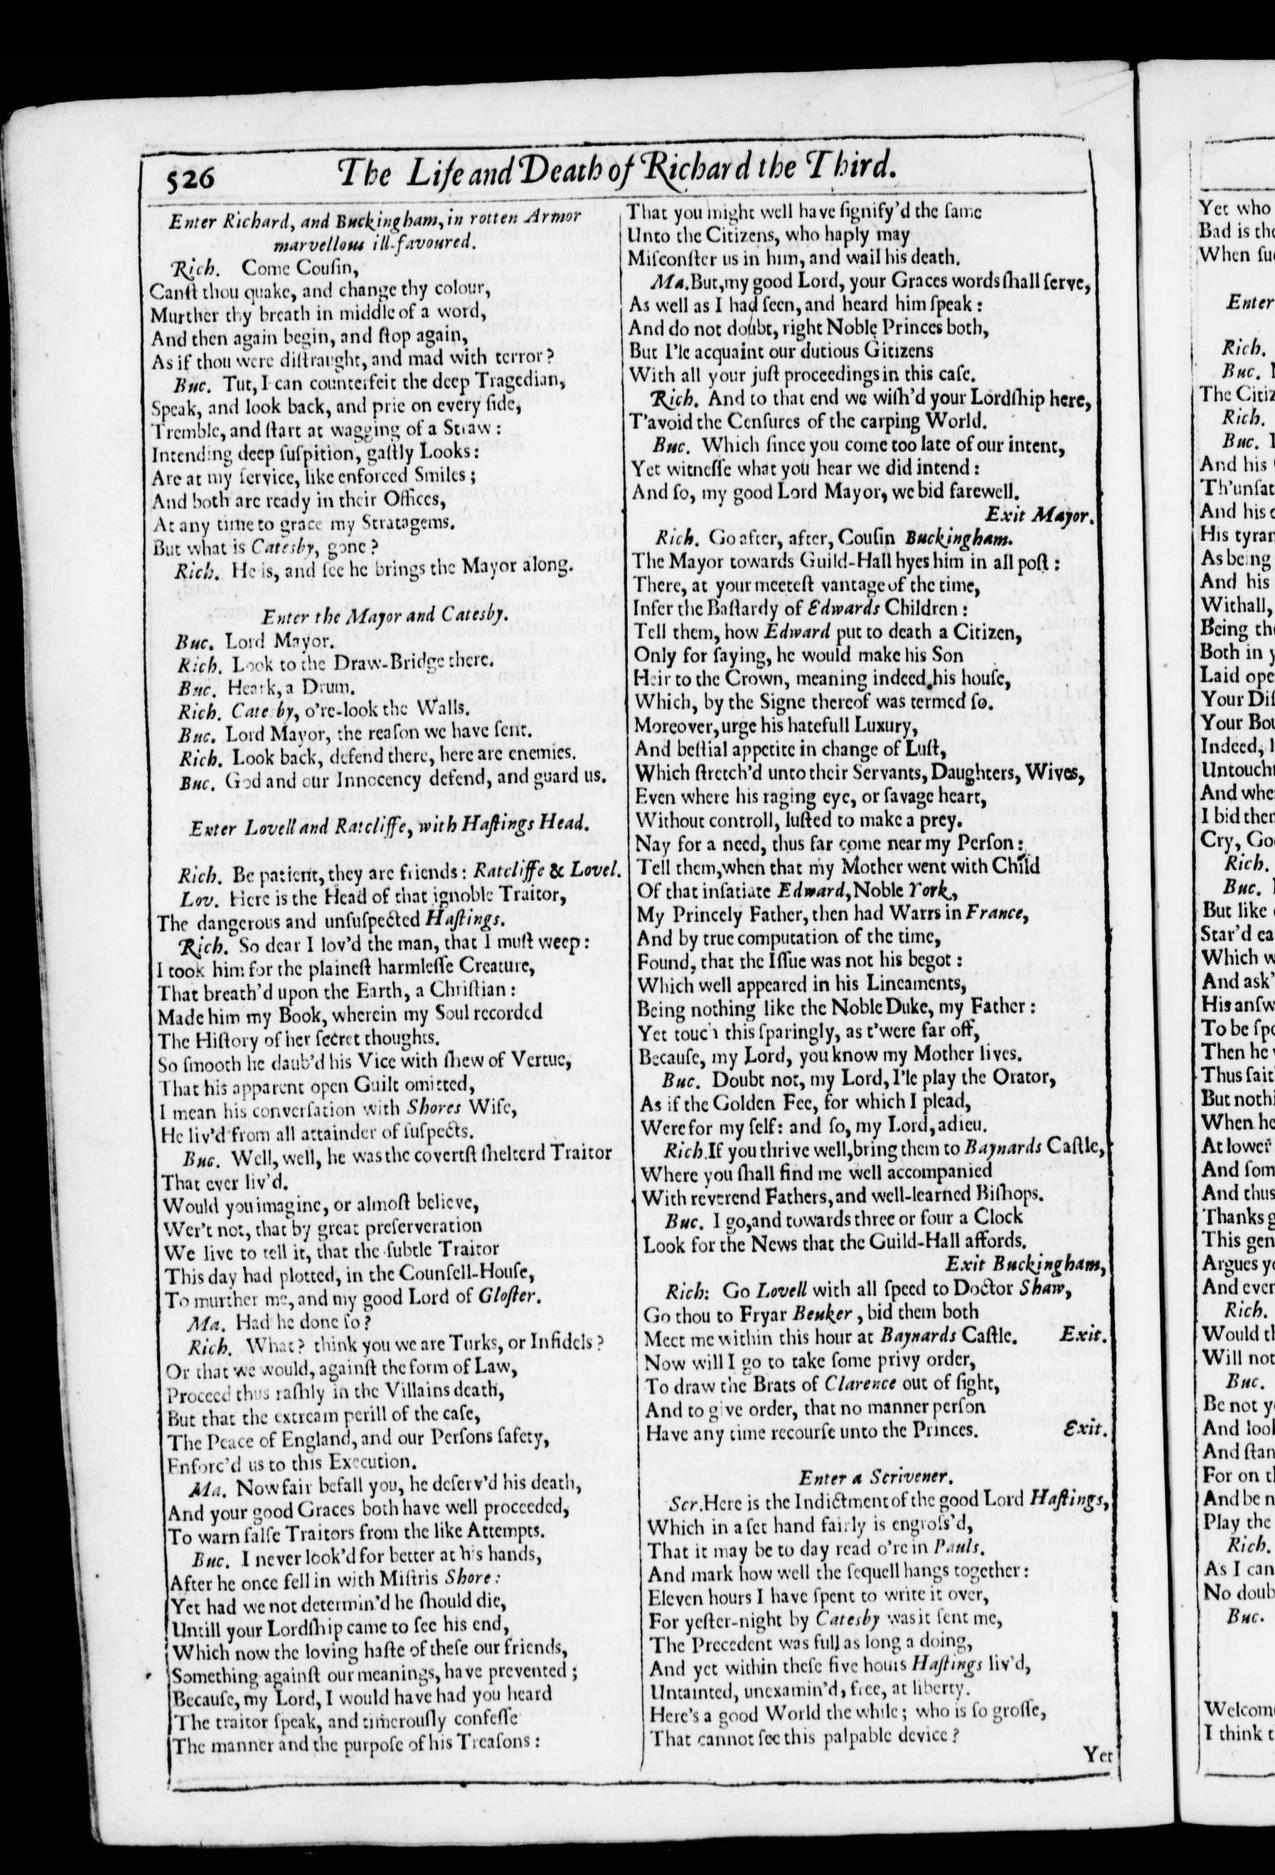 526
The Life and Death of Richard the Third.
Enter Richard, and Buckingham, in rotten Armor
marvellous ill-favoured.
Rich. Come Couſin,
Canſt thou quake, and change thy colour,
Murther thy breath in middle of a word,
And then again begin, and ſtop again,
As if thou were diſtraught, and mad with terror?
Buc. Tut, I can counterfeit the deep Tragedian,
Speak, and look back, and prie on every ſide,
Tremble, and ſtart at wagging of a Straw:
Intending deep ſuſpition, gaſtly Looks:
Are at my ſervice, like enforced Smiles;
And both are ready in their Offices,
At any time to grace my Stratagems.
But what is Catesby, gone?
Rich. He is, and ſee he brings the Mayor along.
Enter the Mayor and Catesby.
Buc. Lord Mayor.
Rich. Look to the Draw-Bridge there.
Buc. Heark, a Drum.
Rich. Catesby, o're-look the Walls.
Buc. Lord Mayor, the reaſon we have ſent.
Rich. Look back, defend there, here are enemies.
Buc. God and our Innocency defend, and guard us.
Exter Lovell and Ratcliffe, with Haſtings Head.
Rich. Be patient, they are friends: Ratcliffe & Lovel.
Lov. Here is the Head of that ignoble Traitor,
The dangerous and unſuſpected Haſtings.
Rich. So dear I lov'd the man, that I muſt weep:
I took him for the plaineſt harmleſſe Creature,
That breath'd upon the Earth, a Chriſtian:
Made him my Book, wherein my Soul recorded
The Hiſtory of her ſecret thoughts.
So ſmooth he daub'd his Vice with ſhew of Vertue,
That his apparent open Guilt omitted,
I mean his converſation with Shores Wife,
He liv'd from all attainder of ſuſpects.
Buc. Well, well, he was the covertſt ſhelterd Traitor
That ever liv'd.
Would you imagine, or almoſt believe,
Wer't not, that by great preſerveration
We live to tell it, that the ſubtle Traitor
This day had plotted, in the Counſell-Houſe,
To murther me, and my good Lord of Gloſter.
Ma. Had he done ſo?
Rich. What? think you we are Turks, or Infidels?
Or that we would, againſt the form of Law,
Proceed thus raſhly in the Villains death,
But that the extream perill of the caſe,
The Peace of England, and our Perſons ſafety,
Enforc'd us to this Execution.
Ma. Now fair befall you, he deſerv'd his death,
And your good Graces both have well proceeded,
To warn falſe Traitors from the like Attempts.
Buc. I never look'd for better at his hands,
After he once fell in with Miſtris Shore:
Yet had we not determin'd he ſhould die,
Untill your Lordſhip came to ſee his end,
Which now the loving haſte of theſe our friends,
Something againſt our meanings, have prevented;
Becauſe, my Lord, I would have had you heard
The traitor ſpeak, and timerouſly confeſſe
The manner and the purpoſe of his Treaſons:
That you might well have ſignify'd the ſame
Unto the Citizens, who haply may
Miſconſter us in him, and wail his death.
Ma. But, my good Lord, your Graces words ſhall ſerve,
As well as I had ſeen, and heard him ſpeak:
And do not doubt, right Noble Princes both,
But I'le acquaint our dutious Gitizens
With all your juſt proceedings in this caſe.
Rich. And to that end we wiſh'd your Lordſhip here,
T'avoid the Cenſures of the carping World.
Buc. Which ſince you come too late of our intent,
Yet witneſſe what you hear we did intend:
And ſo, my good Lord Mayor, we bid farewell.
Exit Mayor.
Rich. Go after, after, Couſin Buckingham.
The Mayor towards Guild-Hall hyes him in all poſt:
There, at your meeteſt vantage of the time,
Infer the Baſtardy of Edwards Children:
Tell them, how Edward put to death a Citizen,
Only for ſaying, he would make his Son
Heir to the Crown, meaning indeed his houſe,
Which, by the Signe thereof was termed ſo.
Moreover, urge his hatefull Luxury,
And beſtial appetite in change of Luſt,
Which ſtretch'd unto their Servants, Daughters, Wives,
Even where his raging eye, or ſavage heart,
Without controll, luſted to make a prey.
Nay for a need, thus far come near my Perſon:
Tell them, when that my Mother went with Child
Of that inſatiate Edward, Noble York,
My Princely Father, then had Warrs in France,
And by true computation of the time,
Found, that the Iſſue was not his begot:
Which well appeared in his Lineaments,
Being nothing like the Noble Duke, my Father:
Yet touch this ſparingly, as t'were far off,
Becauſe, my Lord, you know my Mother lives.
Buc. Doubt not, my Lord, I'le play the Orator,
As if the Golden Fee, for which I plead,
Were for my ſelf: and ſo, my Lord, adieu.
Rich. If you thrive well, bring them to Baynards Caſtle,
Where you ſhall find me well accompanied
With reverend Fathers, and well-learned Biſhops.
Buc. I go, and towards three or four a Clock
Look for the News that the Guild-Hall affords.
Exit Buckingham,
Rich: Go Lovell with all ſpeed to Doctor Shaw,
Go thou to Fryar Beuker, bid them both
Meet me within this hour at Baynards Caſtle. Exit.
Now will I go to take ſome privy order,
To draw the Brats of Clarence out of ſight,
And to give order, that no manner perſon
Have any time recourſe unto the Princes. Exit.
Enter a Scrivener.
Scr. Here is the Indictment of the good Lord Haſtings,
Which in a ſet hand fairly is engroſs'd,
That it may be to day read o're in Pauls.
And mark how well the ſequell hangs together:
Eleven hours I have ſpent to write it over,
For yeſter-night by Catesby was it ſent me,
The Precedent was full as long a doing,
And yet within theſe five hours Haſtings liv'd,
Untainted, unexamin'd, free, at liberty.
Here's a good World the while; who is ſo groſſe,
That cannot ſee this palpable device?
Yet
Yet who
Bad is the
When ſu
Enter
Rich.
Buc.
The Citiz
Rich.
Buc.
And his
Th'unſat
And his
His tyran
As being
And his
Withall,
Being the
Both in y
Laid ope
Your Diſ
Your Bou
Indeed, l
Untoucht
And whe
I bid ther
Cry, Go
Rich.
Buc.
But like
Star'd ea
Which w
And ask'
His anſw
To be ſpo
Then he
Thus ſait
But nothi
When he
At lower
And ſom
And thus
Thanks g
This gen
Argues yo
And ever
Rich.
Would th
Will not
Buc.
Be not y
And look
And ſtan
For on th
And be n
Play the
Rich.
As I can
No doub
Buc.
Welcome
I think t